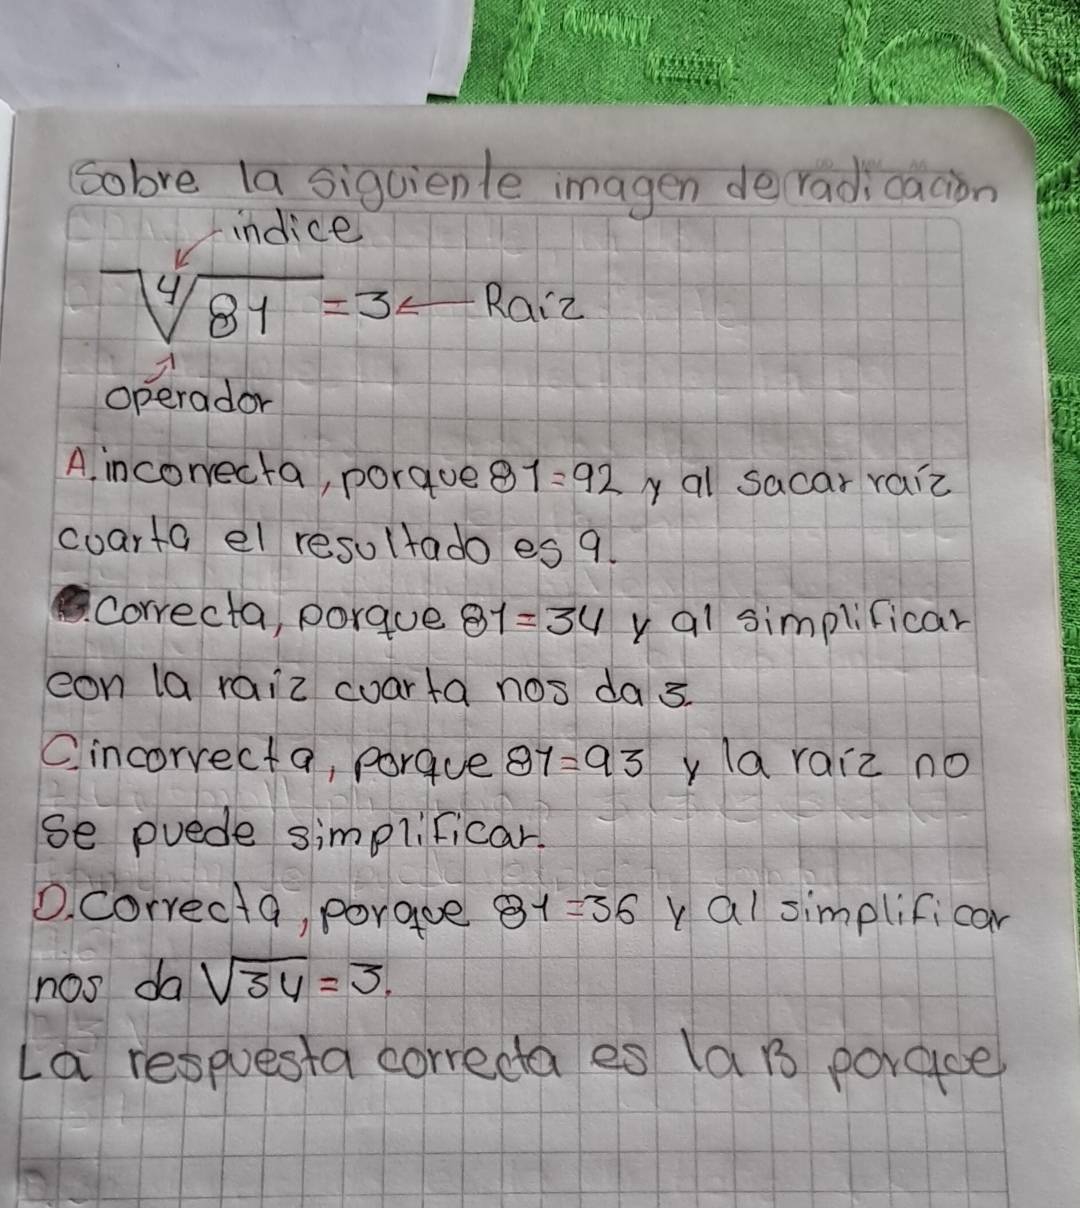 Sobre la siguiente imagen de radicación
índice
∜81 = 3 ← Raíz
operador
A. incorrecta, porque 81=92 y al sacar raíz
cuarta el resultado es 9.
correcta, porque 81=34 y al simplificar
con la raiz cuarta nos da 3.
C. incorrecta, porque 81=93 y la raíz no
se puede simplificar.
D. correcta, porque 81=36 y al simplificar
nos da √34 = 3.
La respuesta correcta es la B porque